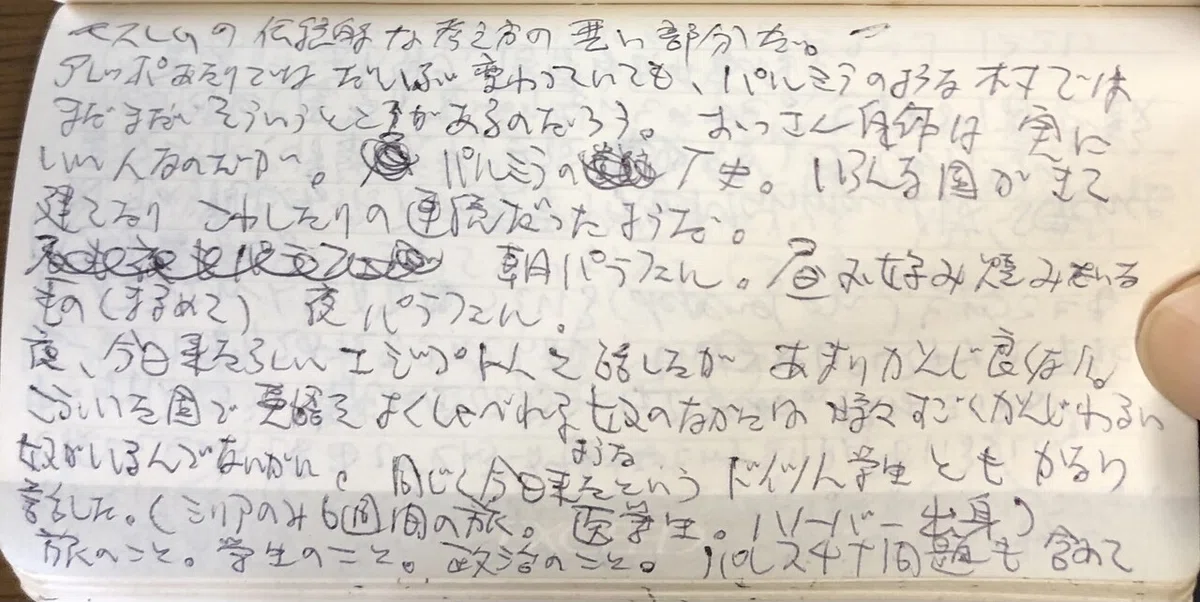 モスレムの伝統的な考え方の悪い部分だ。
アレッポあたりではだいぶ変わっていても、パルミラのような村では
まだまだそういうところがあるのだろう。おっさん自体は実に
いい人なのだが。 パルミラの 歴史。いろんな国がきて
建てたり こわしたりの連続だったようだ。
朝パラフェル。昼お好み焼みたいな
もの(まるめて) 夜パラフェル。
夜、今日来たらしいエジプト人と話したが あまりかんじ良くない。
こういう国で英語をよくしゃべれる奴のなかには 時々すごくかんじわるい
奴がいるんでないかい。同じく今日来たようなという ドイツ人学生とも かなり
話した。(シリアのみ6週間の旅。医学生。ハノーバー出身)
旅のこと。学生のこと。政治のこと。パレスチナ問題も含めて